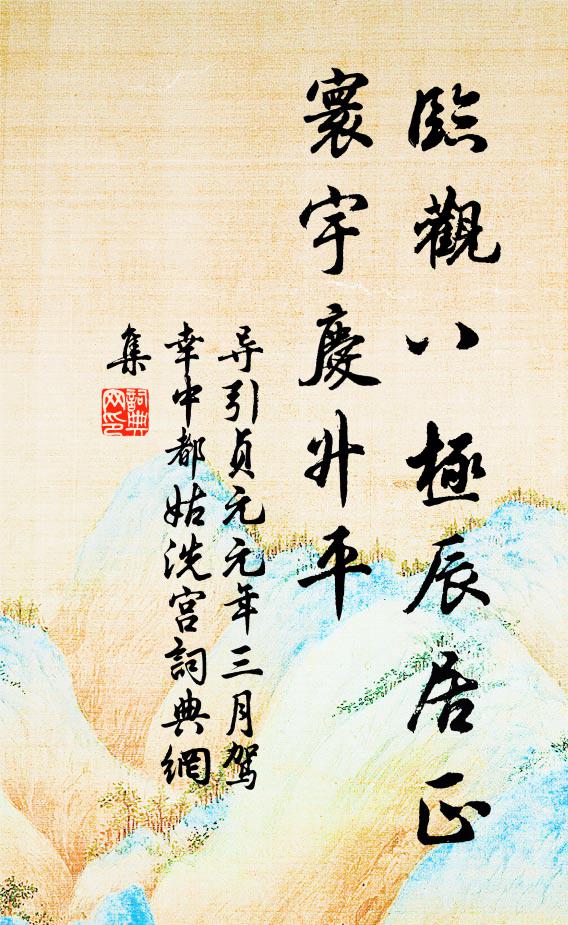 臨觀八極辰居正
寰宇慶升平
导引貞元元年三月駕
幸中都姑洗宮詞典網
集
詞典
网印